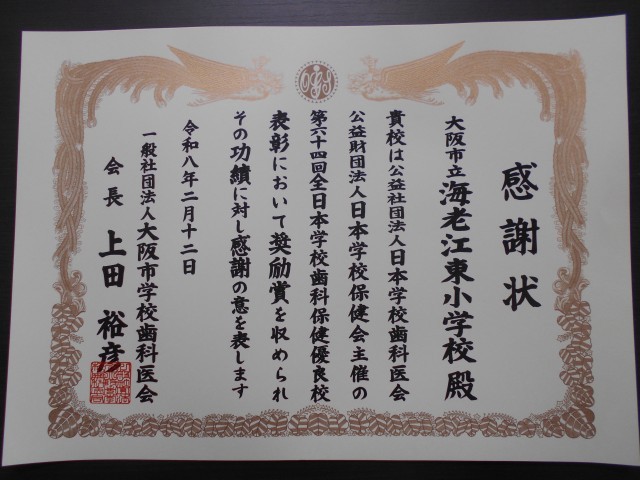 感謝状
大阪市立海老江東小学校殿
貴校は公益社団法人日本学校歯科医会
公益財団法人日本学校保健会主催の
第六十四回全日本学校歯科保健優良校
表彰において奨励賞を収められ
その功績に対し感謝の意を表します
令和八年二月十二日
一般社団法人大阪市学校歯科医会
会長 上田裕彦